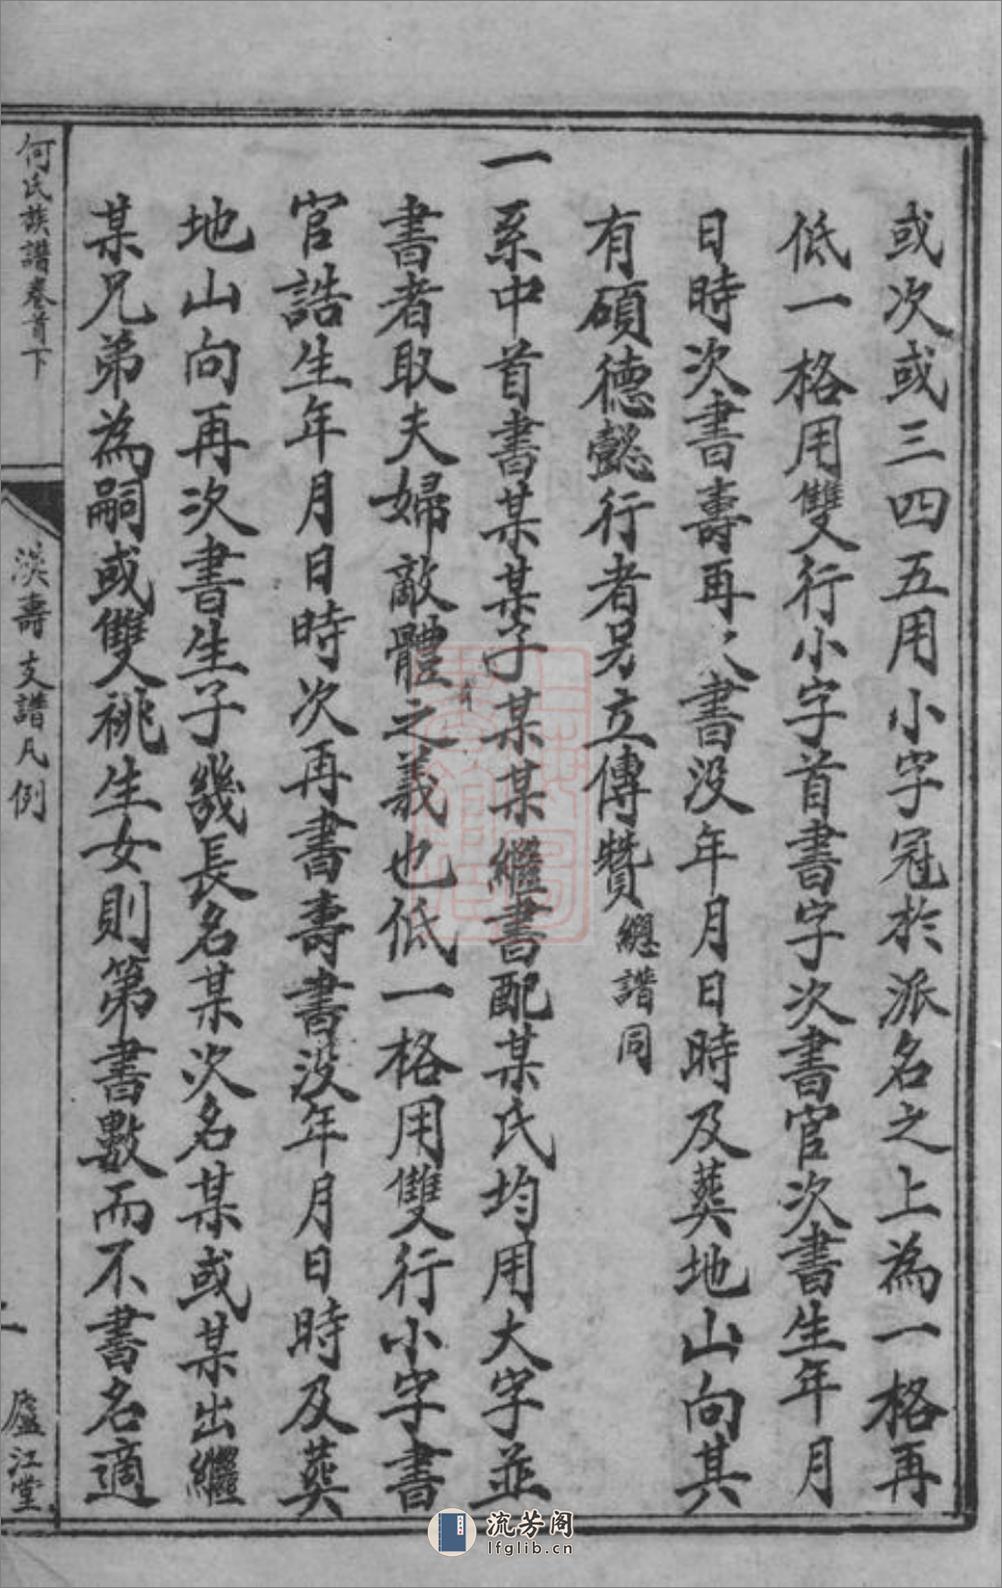 或次或三四五用小字冠於派名之上為一格再
低一格用雙行小字首書字次書官次書生年月
日時次書壽再次書没年月日時及葬地山向其
有碩德懿行者另立傳贊總譜同
一系中首書某某子某某繼書配某氏均用大字並
書者取夫婦敵體之義也低一格用雙行小字書
官誥生年月日時次再書壽書没年月日時及葬
地山向再次書生子幾長名某次名某或某出繼
某兄弟為嗣或雙祧生女則第書數而不書名適
何氏族譜卷首下
淡壽支譜凡例
廬江堂
流芳阁
lfglib.cn